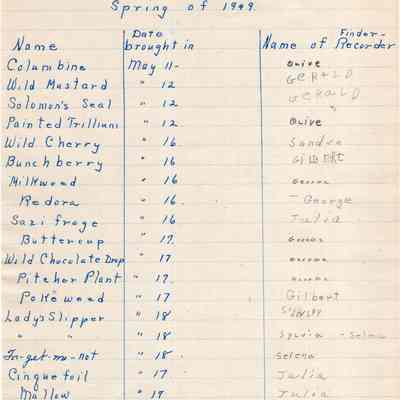 Spring of 1949.
Name Date brought in Name of Finder-Recorder
Columbine May 11- Olive
Wild Mustard " 12 GERALD
Solomon's Seal " 12 GERALD
Painted Trillium " 12 Olive
Wild Cherry " 16. Sandra
Bunchberry " 16 Gilbert
Milkweed " 16
Redora " 16. - George
Saxifrage " 16 Julia
Buttercup " 17.
Wild Chocolate Drop " 17
Pitcher Plant " 17.
Poke weed " 17 Gilbert
Lady's Slipper " 18
" " " 18 Sylvia - Selena
For-get-me-not " 18. Selena
Cinquefoil " 17 Julia
Mallow " 19 Julia